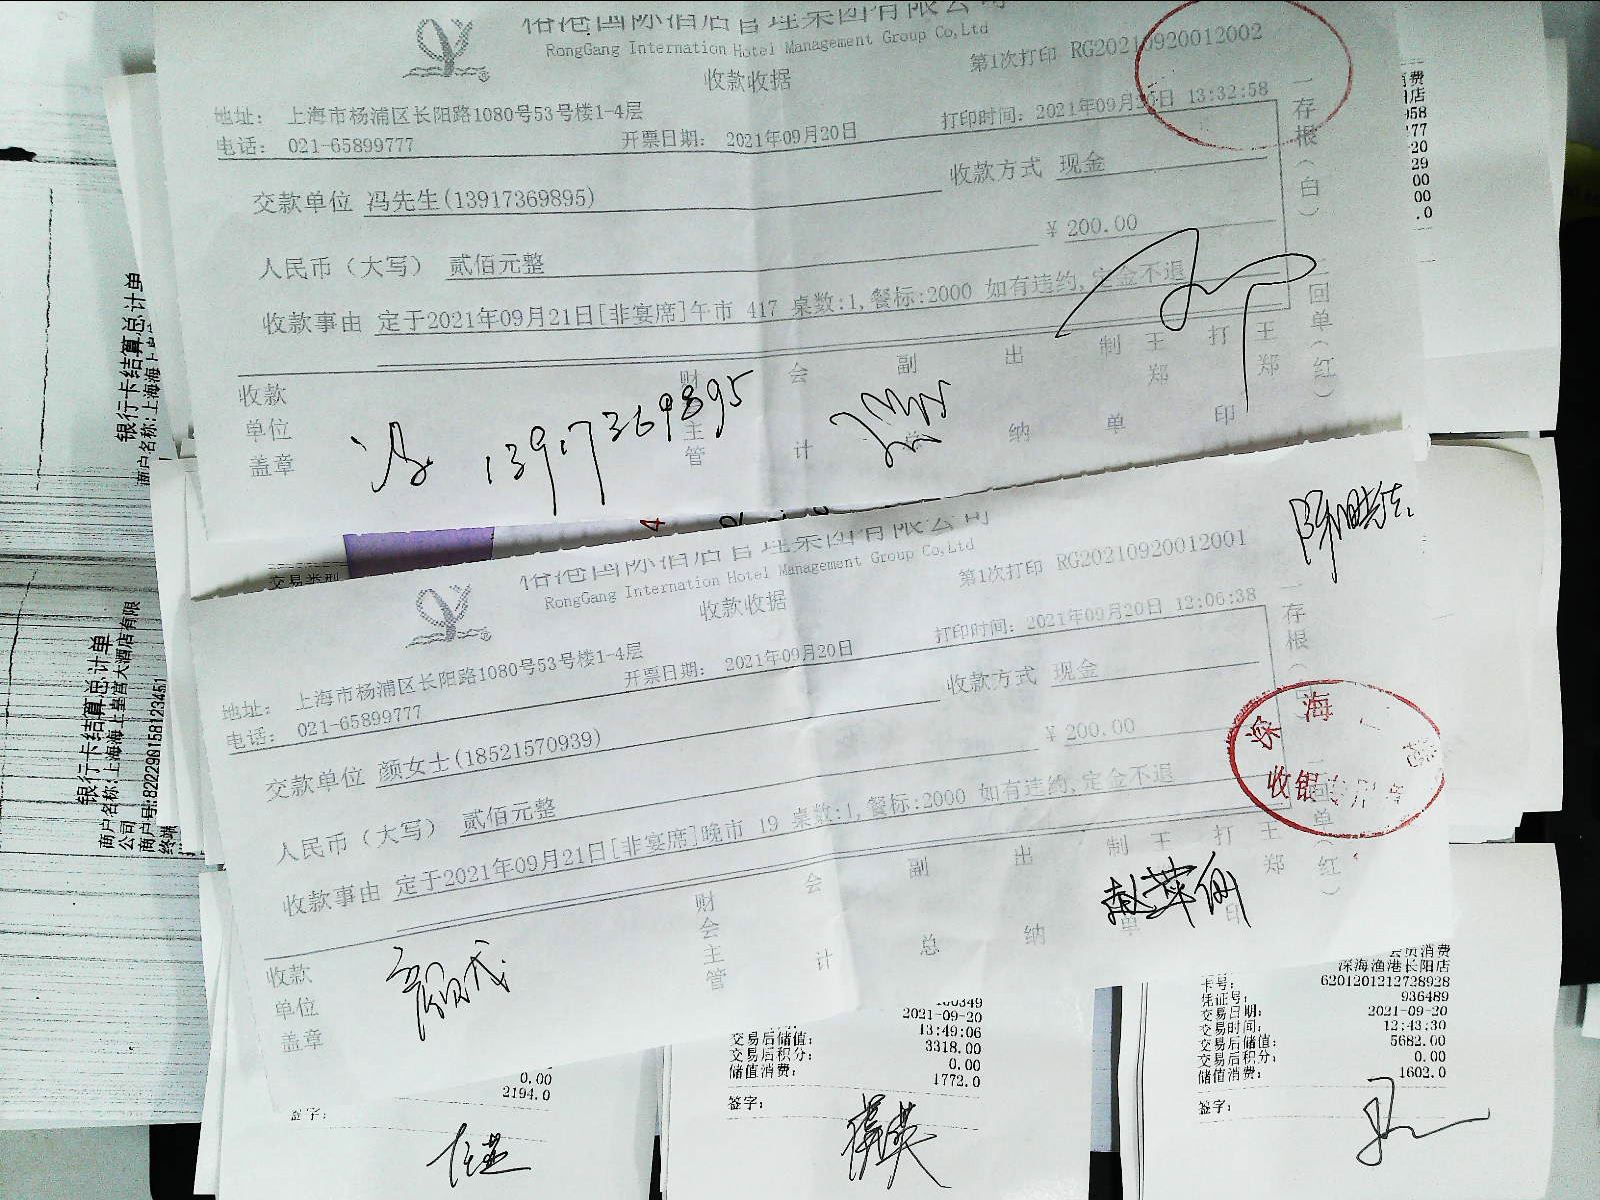 国际酒店管理集团有限公司
RongGang Internation Hotel Management Group Co,Ltd
收款收据
第1次打印 RG20210920012002
地址： 上海市杨浦区长阳路1080号53号楼1-4层
电话： 021-65899777
开票日期： 2021年09月20日
打印时间：2021年09月20日 13:32:58
交款单位 冯先生(13917369895)
收款方式 现金
人民币（大写） 贰佰元整
¥ 200.00
收款事由 定于2021年09月21日[非宴席]午市 417 桌数:1,餐标:2000 如有违约,定金不退
收款单位盖章
财会主管
会计
副总
出纳
制单
王郑
打印
王郑
一存根（白）
一回单（红）
冯 13917369895
国际酒店管理集团有限公司
RongGang Internation Hotel Management Group Co,Ltd
收款收据
第1次打印 RG20210920012001
地址： 上海市杨浦区长阳路1080号53号楼1-4层
电话： 021-65899777
开票日期： 2021年09月20日
打印时间：2021年09月20日 12:06:38
交款单位 颜女士(18521570939)
收款方式 现金
人民币（大写） 贰佰元整
¥ 200.00
收款事由 定于2021年09月21日[非宴席]晚市 19 桌数:1,餐标:2000 如有违约,定金不退
收款单位盖章
财会主管
会计
副总
出纳
制单
王郑
打印
王郑
一存根
一回单（红）
深海
收银专用章
颜
银行卡结算总计单
商户名称:上海海上皇
银行卡结算总计单
商户名称:上海海上皇宫大酒店有限
公司
商户号:822290158123451
终端
交易类型
0.00
2194.0
签字:
2021-09-20
13:49:06
交易后储值: 3318.00
交易后积分: 0.00
储值消费: 1772.0
签字:
会员消费
深海渔港长阳店
卡号: 6201201212738928
凭证号: 936489
交易日期: 2021-09-20
交易时间: 12:43:30
交易后储值: 5682.00
交易后积分: 0.00
储值消费: 1602.0
签字: